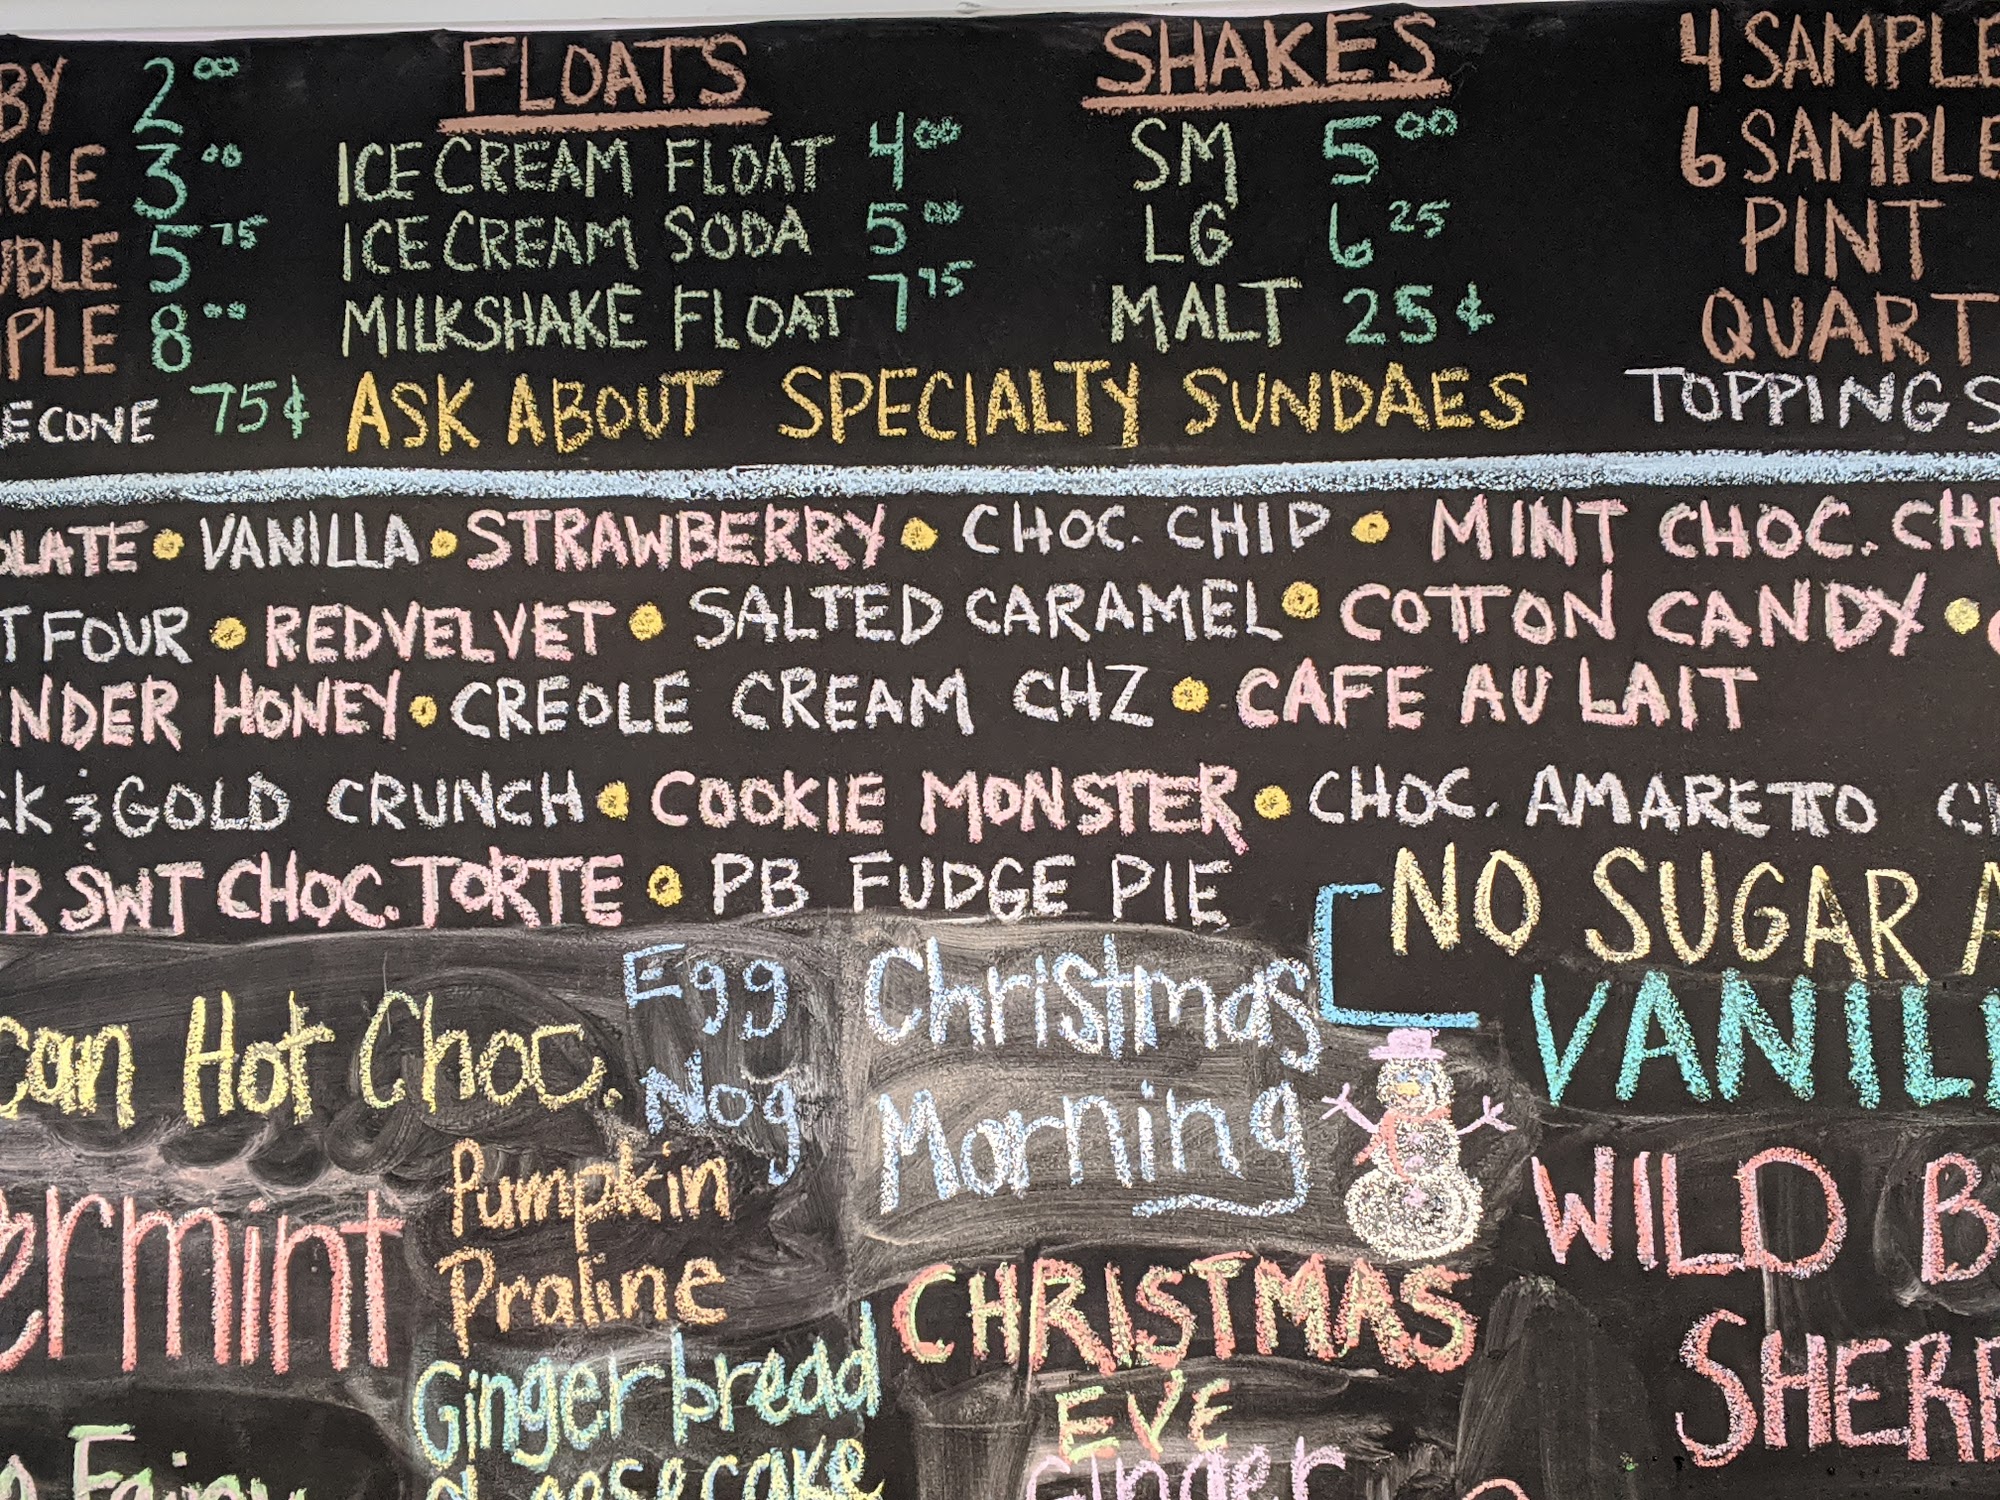 BY 2.00
GLE 3.00
UBLE 5.75
PLE 8.00
E CONE 75¢
FLOATS
ICE CREAM FLOAT 4.00
ICE CREAM SODA 5.00
MILKSHAKE FLOAT 7.75
SHAKES
SM 5.00
LG 6.25
MALT 25¢
ASK ABOUT SPECIALTY SUNDAES
4 SAMPLE
6 SAMPLE
PINT
QUART
TOPPINGS
OLATE • VANILLA • STRAWBERRY • CHOC. CHIP • MINT CHOC. CHI
T FOUR • RED VELVET • SALTED CARAMEL • COTTON CANDY •
NDER HONEY • CREOLE CREAM CHZ • CAFE AU LAIT
CK & GOLD CRUNCH • COOKIE MONSTER • CHOC. AMARETTO
R SWT CHOC. TORTE • PB FUDGE PIE
NO SUGAR A
VANIL
WILD B
SHERB
can Hot Choc.
Egg
Nog
Christmas
Morning
ermint
Pumpkin
Praline
CHRISTMAS
EVE
Ginger
Gingerbread
cheesecake
Fairy